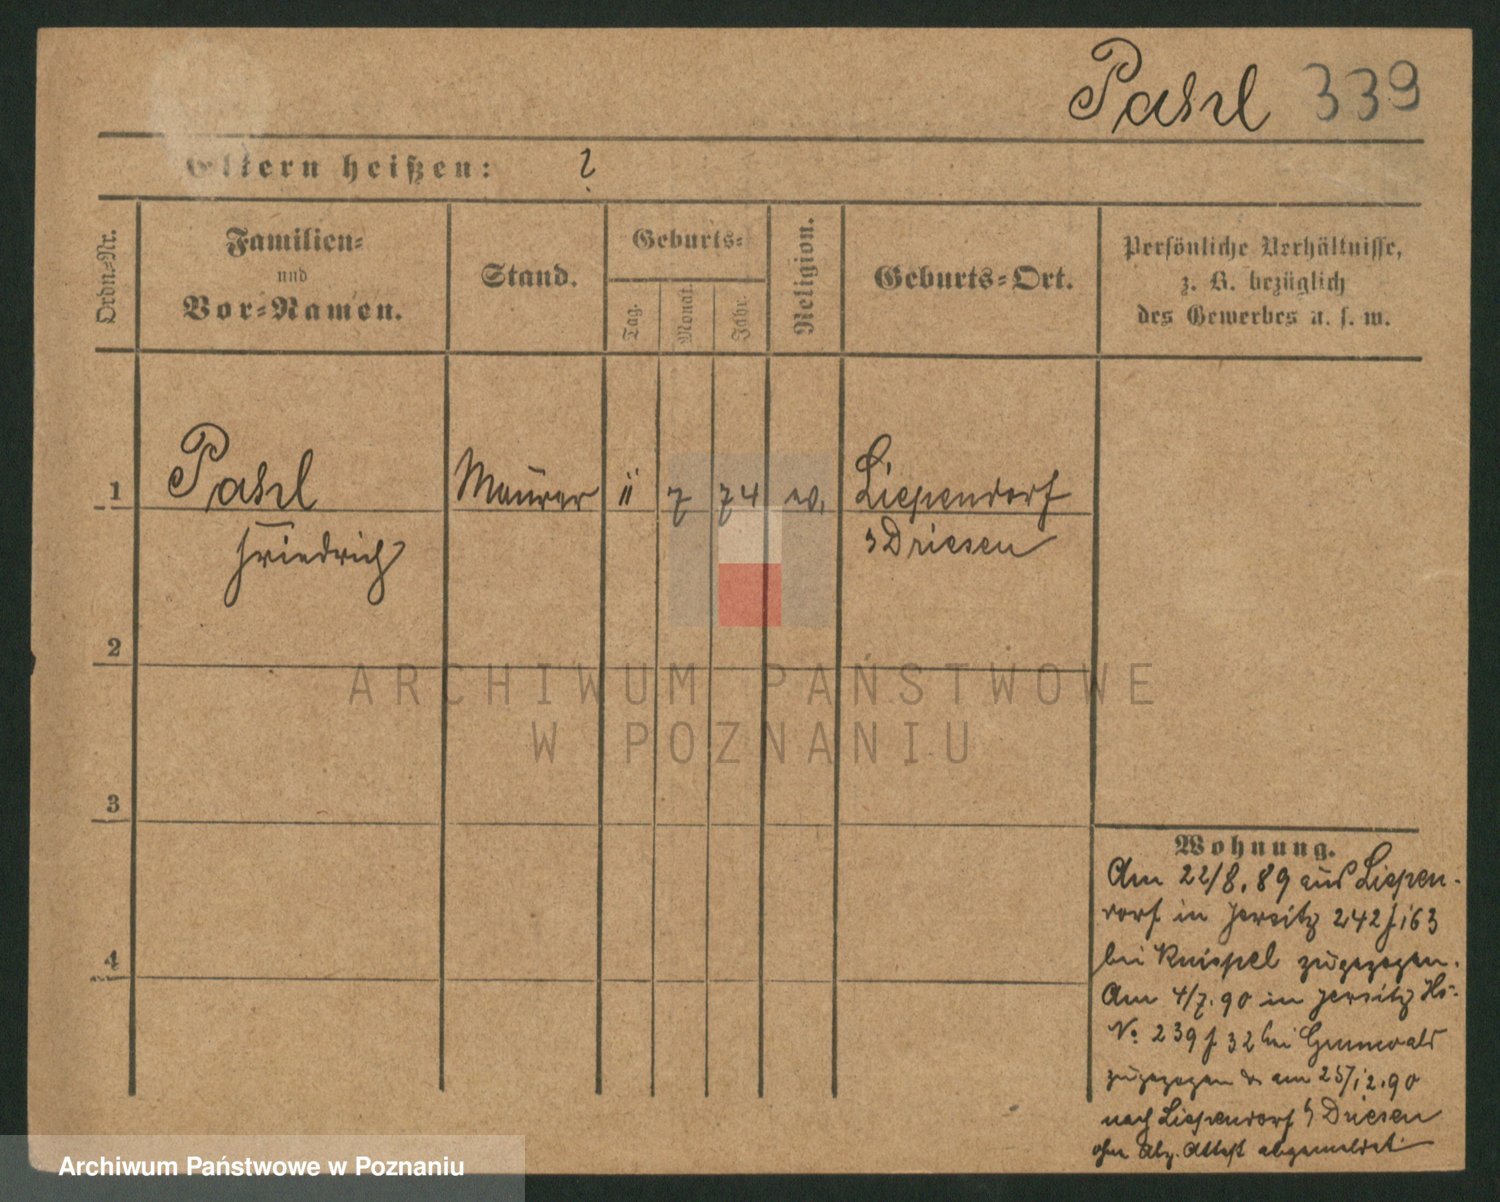 Pahl 339
Eltern heißen: ?
Ordn.-Nr.
Familien-
und
Vor-Namen.
Stand.
Geburts-
Tag.
Monat.
Jahr.
Religion.
Geburts-Ort.
Persönliche Verhältnisse,
z. B. bezüglich
des Gewerbes u. s. w.
1
Pahl
Friedrich
Maurer
11
7
74
ev.
Liependorf
Driesen
2
3
4
Wohnung.
Am 22/8. 89 aus Liepen-
dorf in Jersitz 242 163
bei Kniepel zugezogen.
Am 4/7. 90 in Jersitz Hs-
No 239 32 bei Grunwald
zugezogen & am 25/12.90
nach Liependorf Driesen
ohne Abz. Attest abgemeldet
ARCHIWUM PAŃSTWOWE
W POZNANIU
Archiwum Państwowe w Poznaniu